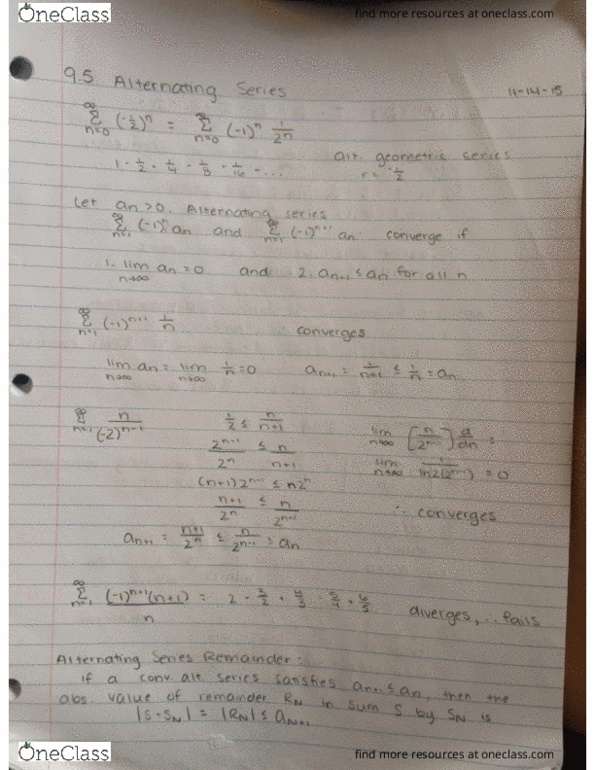 OneClass find more resources at oneclass.com
9.5 Alternating Series 11-14-15
∞Σn=0 (-1/2)^n = ∞Σn=0 (-1)^n 1/2^n
alt. geometric series
1 - 1/2 + 1/4 - 1/8 + 1/16 - ... r = -1/2
Let an > 0. Alternating series
∞Σn=1 (-1)^n an and ∞Σn=1 (-1)^n+1 an converge if
1. lim n→∞ an = 0 and 2. an+1 ≤ an for all n
∞Σn=1 (-1)^n+1 1/n ∴ converges
lim n→∞ an = lim n→∞ 1/n = 0 an+1 = 1/n+1 ≤ 1/n = an
∞Σn=1 n/(-2)^n-1 1/2 ≤ n/n+1 lim n→∞ [n/2^n-1] d/dn =
2^n-1/2^n ≤ n/n+1 lim n→∞ 1/ln2(2^n-1) = 0
(n+1)2^n-1 ≤ n2^n
n+1/2^n ≤ n/2^n-1 ∴ converges
an+1 = n+1/2^n ≤ n/2^n-1 = an
∞Σn=1 (-1)^n+1(n+1)/n = 2 - 3/2 + 4/3 - 5/4 + 6/5 diverges, ∴ fails
Alternating Series Remainder:
If a conv. alt. series satisfies an+1 ≤ an, then the
abs. value of remainder RN in sum S by SN is
|S - SN| = |RN| ≤ aN+1
OneClass find more resources at oneclass.com